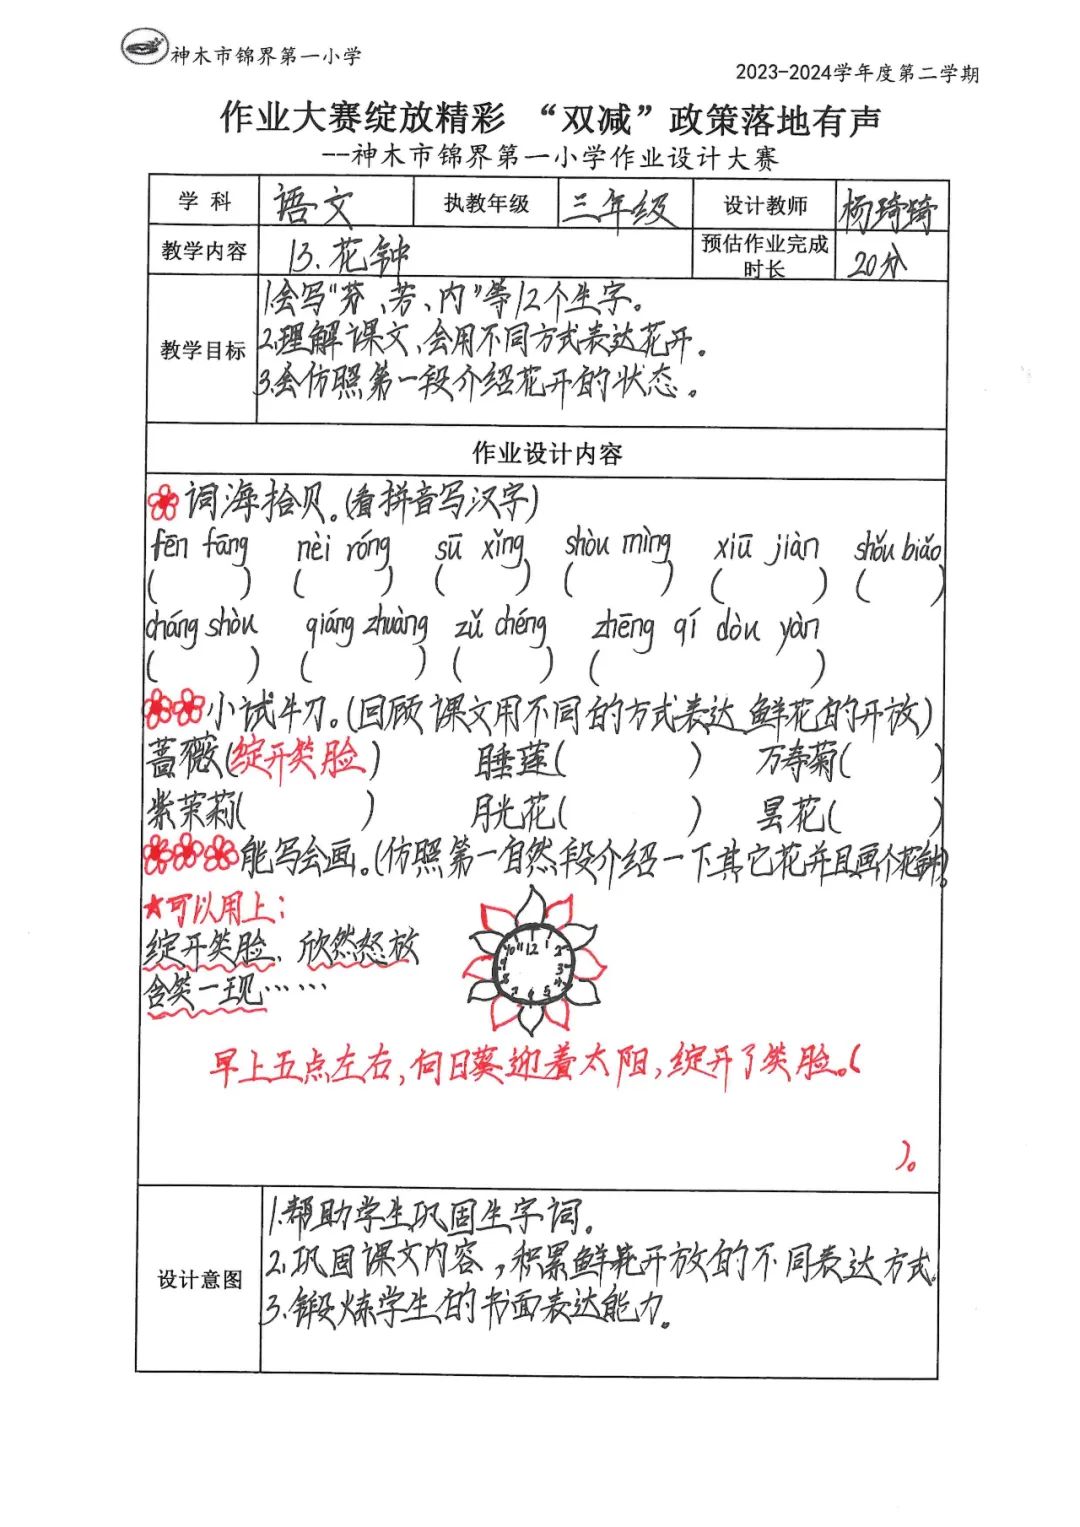 神木市锦界第一小学
2023-2024学年度第二学期
作业大赛绽放精彩 “双减”政策落地有声
--神木市锦界第一小学作业设计大赛
学 科 语文 执教年级 三年级 设计教师 杨琦琦
教学内容 13.花钟 预估作业完成时长 20分
教学目标
1.会写“芬、芳、内”等12个生字。
2.理解课文、会用不同方式表达花开。
3.会仿照第一段介绍花开的状态。
作业设计内容
词海拾贝。(看拼音写汉字)
fēn fāng nèi róng sū xǐng shòu mìng xiū jiàn shǒu biǎo
( ) ( ) ( ) ( ) ( ) ( )
cháng shòu qiáng zhuàng zǔ chéng zhēng qí dòu yàn
( ) ( ) ( ) ( )
小试牛刀。(回顾课文用不同的方式表达 鲜花的开放)
蔷薇(绽开笑脸) 睡莲( ) 万寿菊( )
紫茉莉( ) 月光花( ) 昙花( )
能写会画。(仿照第一自然段介绍一下其它花并且画个花钟)
★可以用上:
绽开笑脸、欣然怒放
含笑一现……
12 1 2 3 4 5 6 7 8 9 10 11
早上五点左右,向日葵迎着太阳,绽开了笑脸。(
)。
设计意图
1.帮助学生巩固生字词。
2.巩固课文内容,积累鲜花开放的不同表达方式。
3.锻炼学生的书面表达能力。